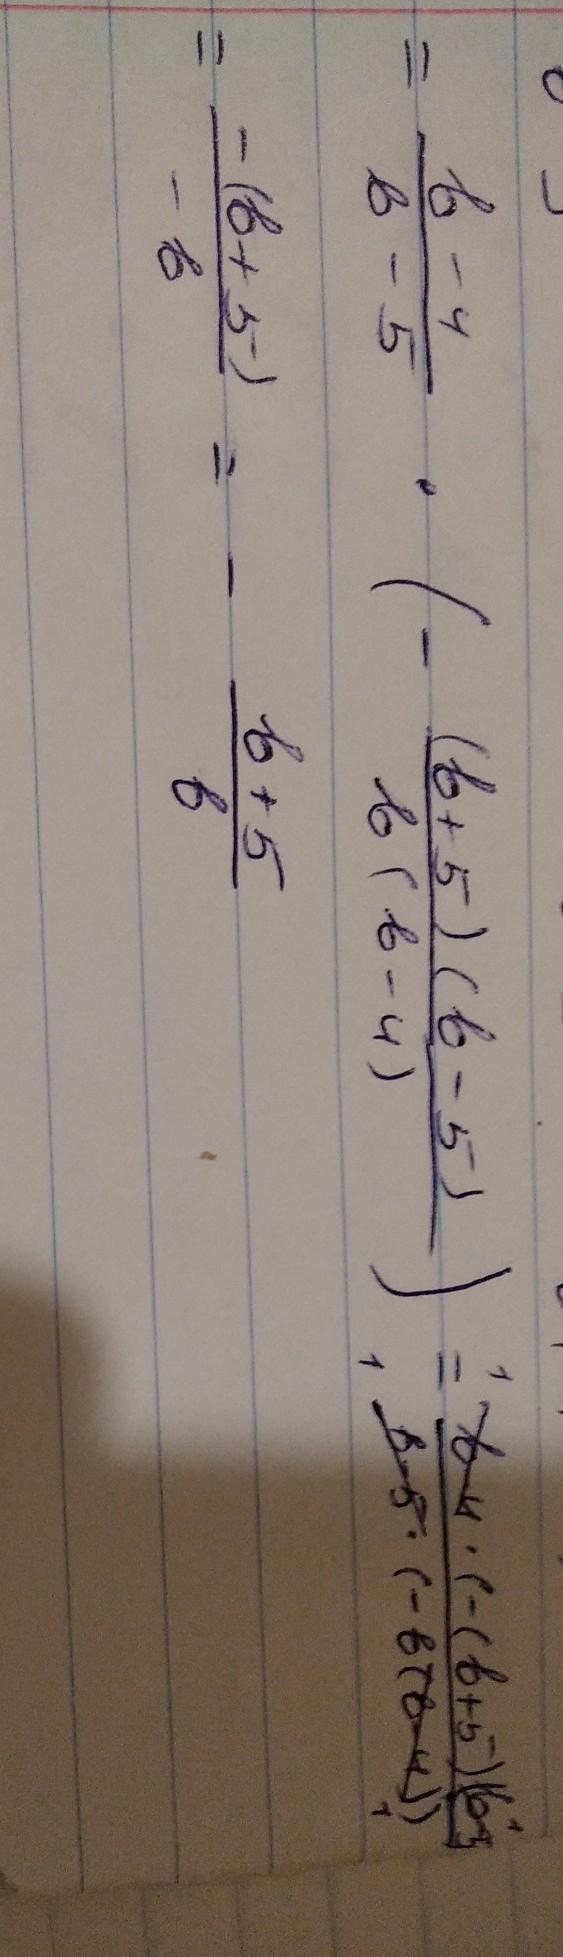 = b - 4 / b - 5 · ( - (b + 5)(b - 5) / b(b - 4) ) = b-4 · (-(b+5)(b-5 / b-5 · (-b(b-4))
= -(b + 5) / - b = - b + 5 / b